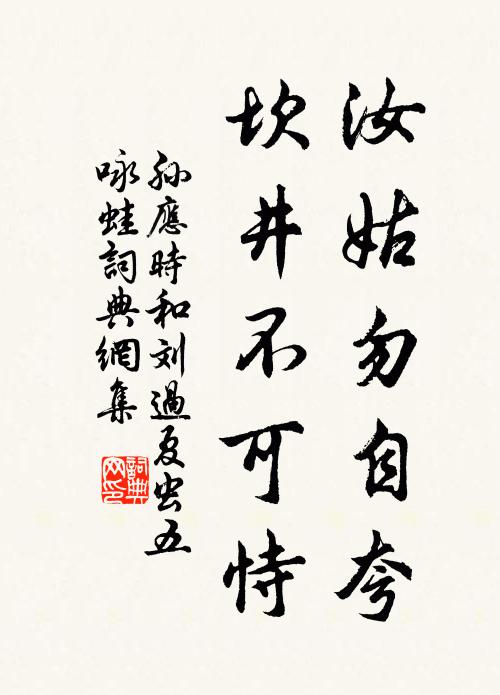 汝姑勿自夸
坎井不可恃
孙應時和刘過夏虫五
咏蛙詞典網集
詞典网印